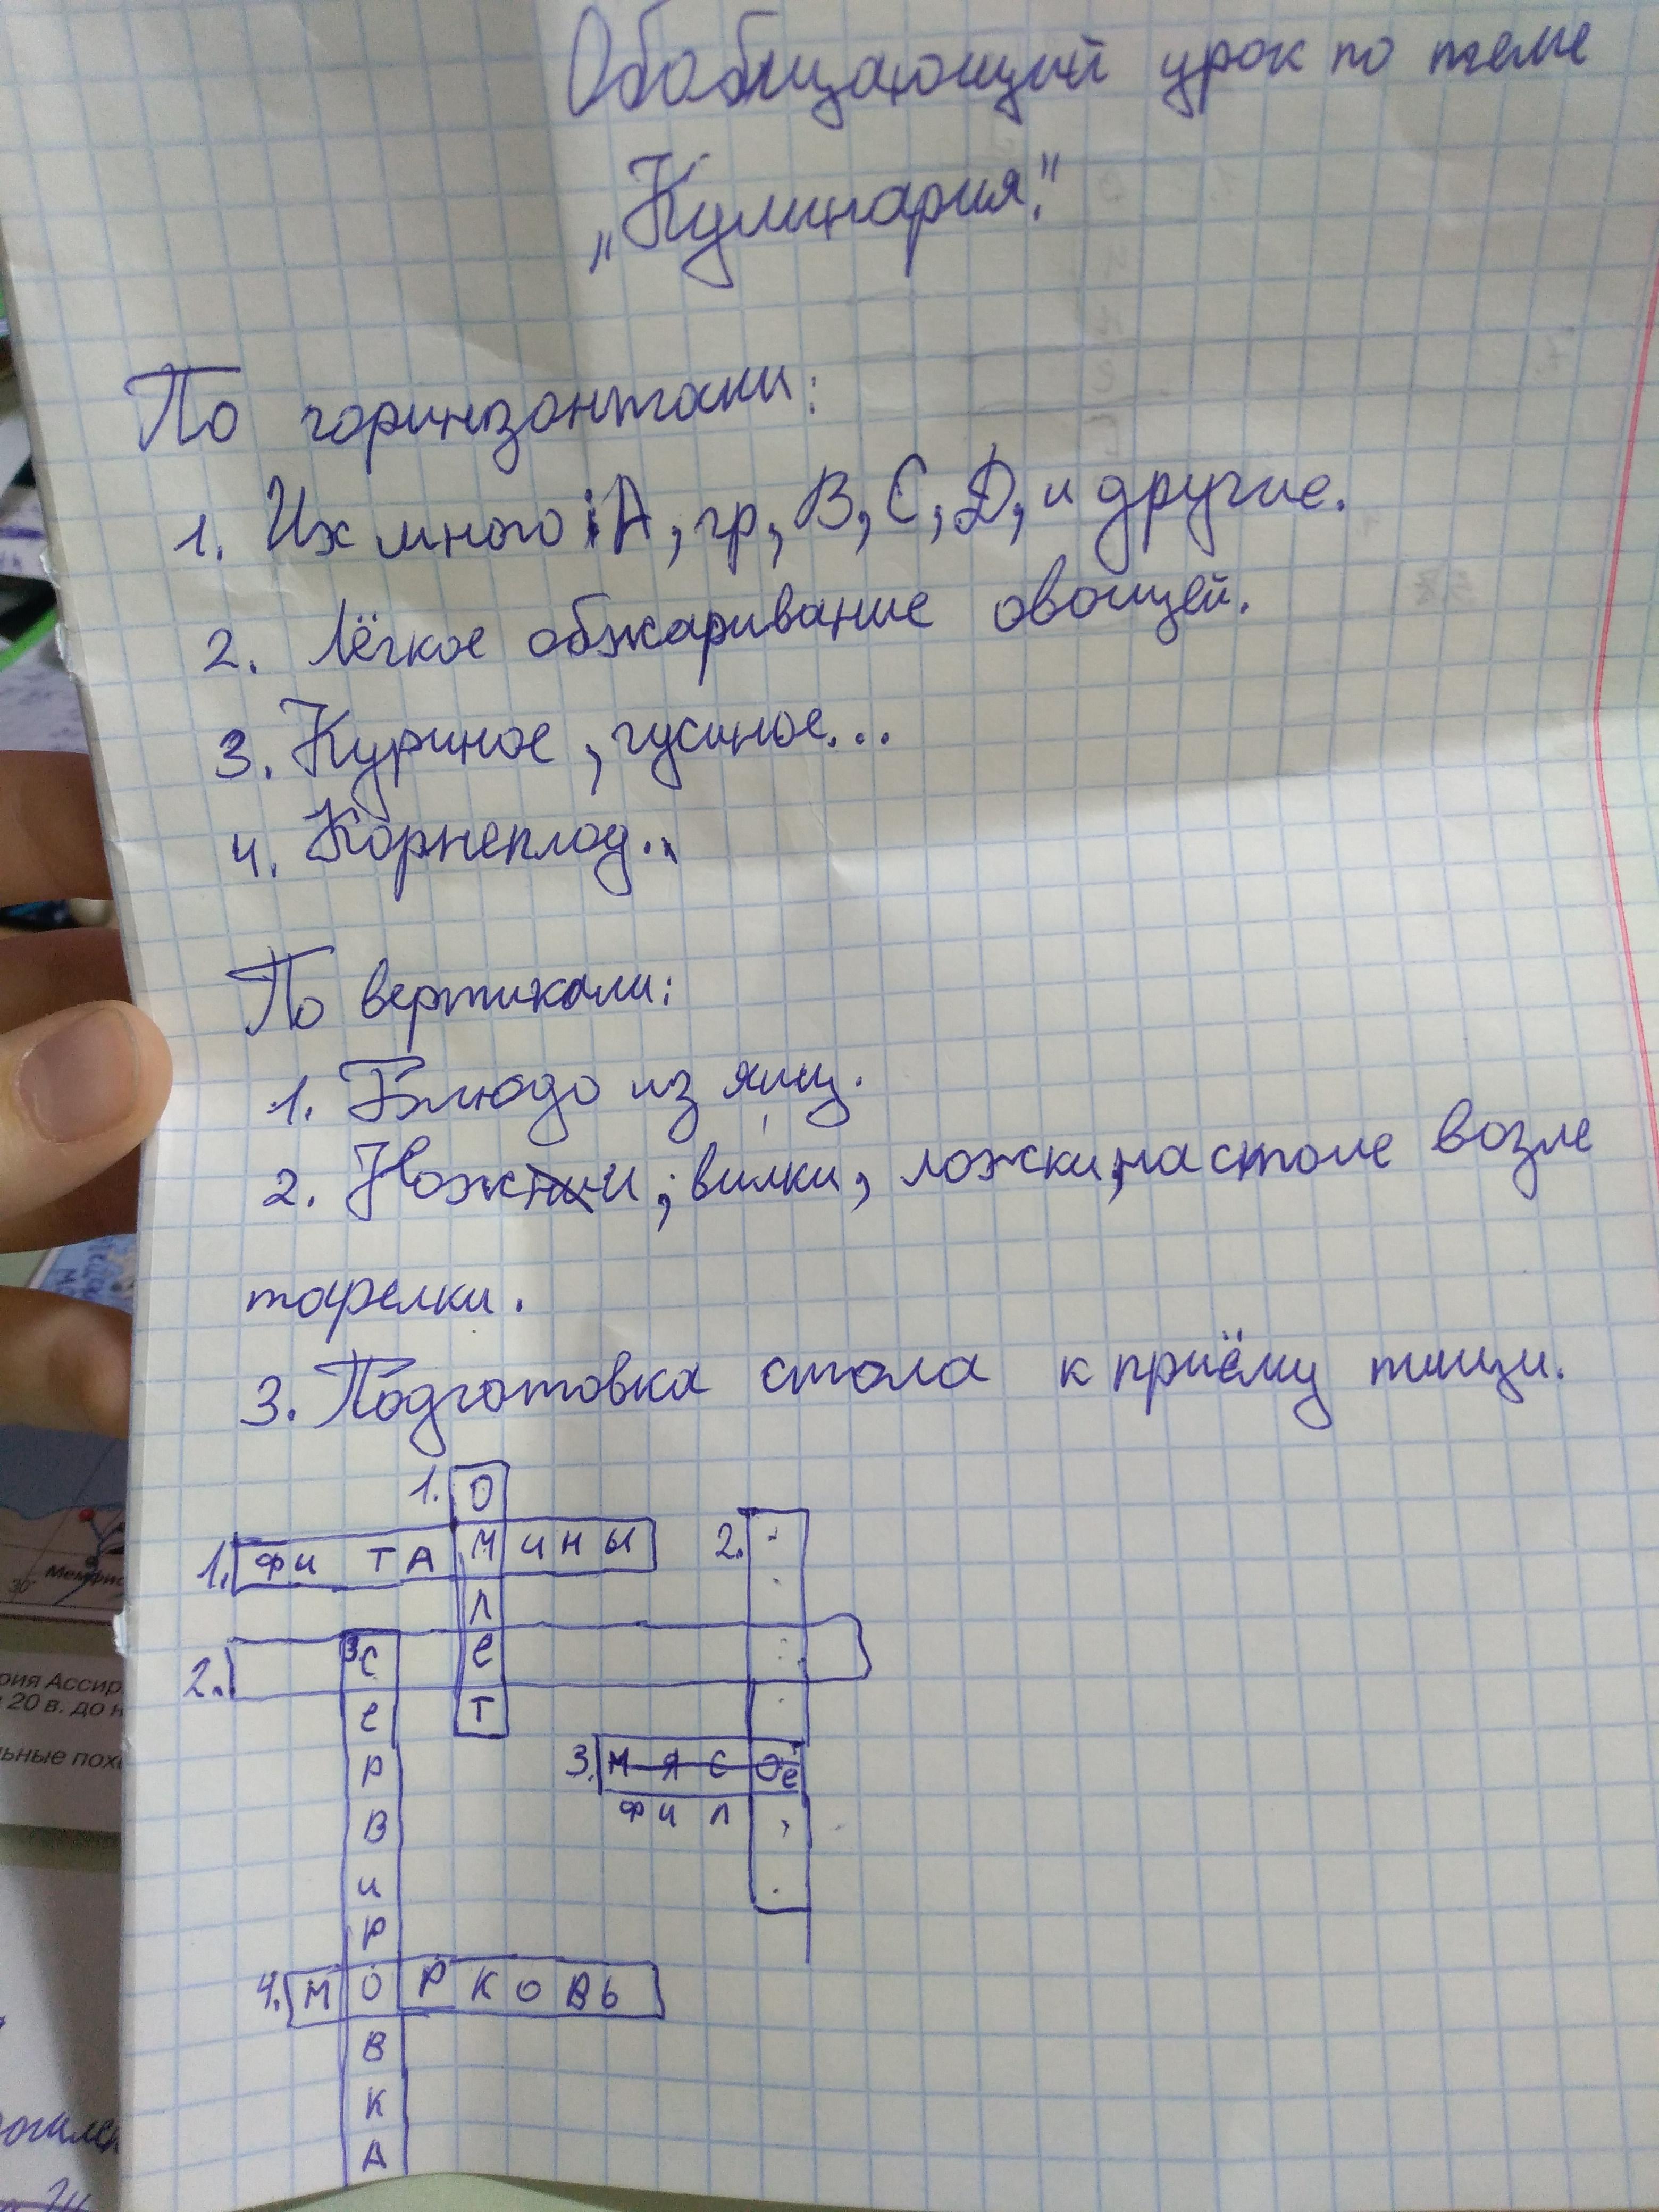 Обобщающий урок по теме
„Кулинария."
По горинзонтали:
1. Их много: А, гр, В, С, D, и другие.
2. Лёгкое обжаривание овощей.
3. Куриное, гусиное...
4. Корнеплод..
По вертикали:
1. Блюдо из яиц.
2. Ножи, вилки, ложки, на столе возле
тарелки.
3. Подготовка стола к приёму пищи.
1. О
1. ФИТАМИНЫ 2.
Л
2. 3 С Е
Е Т
Р 3. МЯСО Е
В ФИЛ
И
Р
4. МОРКОВЬ
В
К
А
Мемфис
30°
рия Ассир
20 в. до н
ьные похо